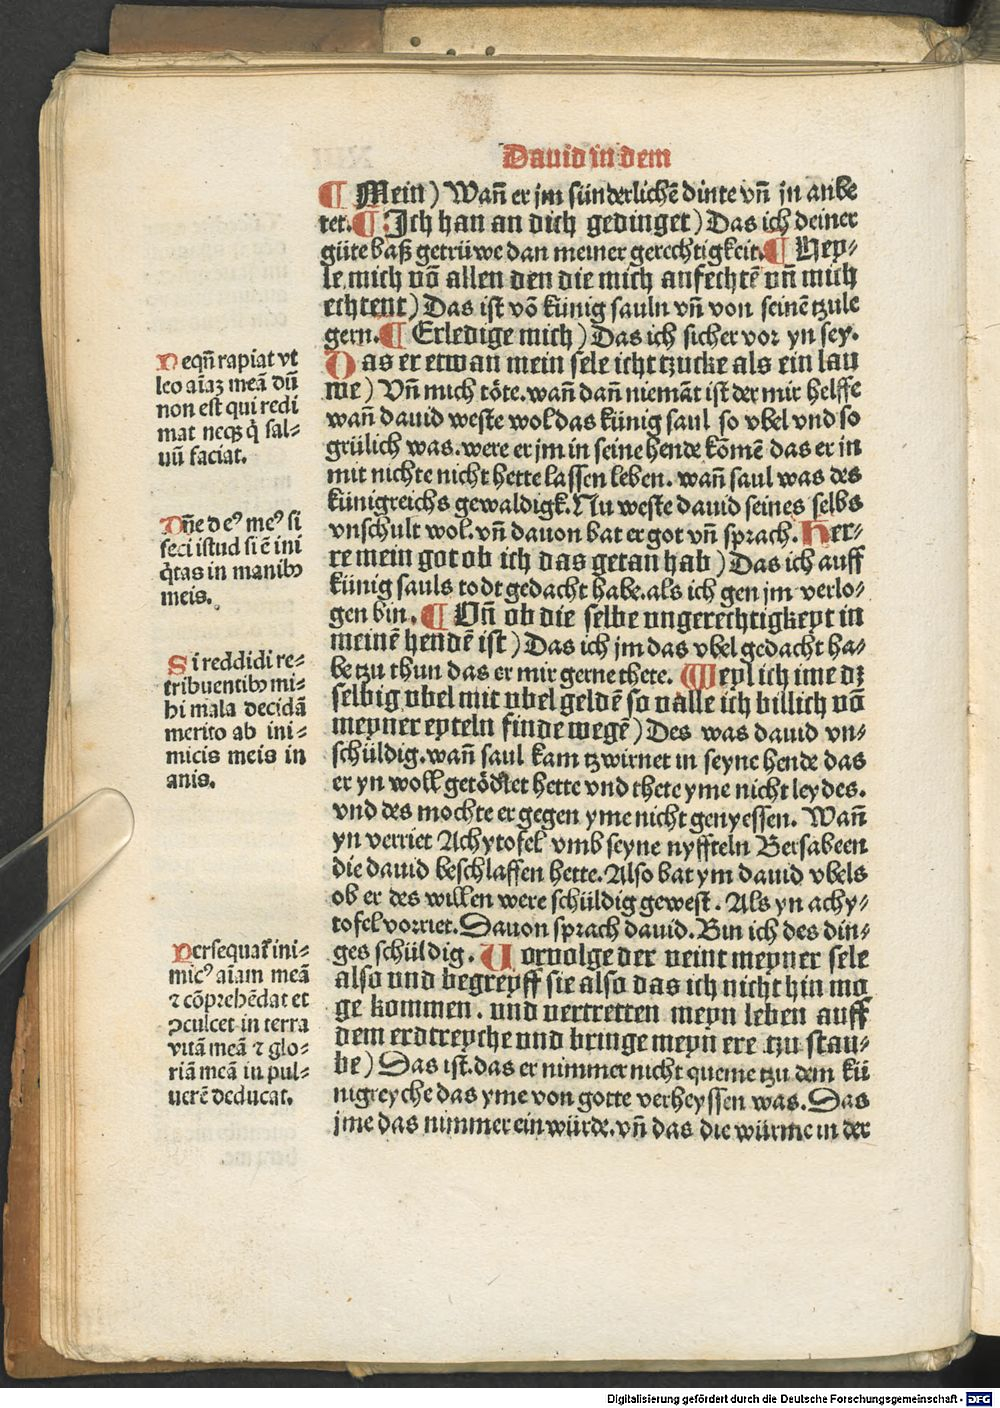 Dauid in dem
¶ Mein) Wañ er jm sünderlichē dinte vñ jn anbe
tet. ¶ Ich han an dich gedinget) Das ich deiner
güte baß getrüwe dan meiner gerechtigkeit. ¶ Hey⸗
le mich võ allen den die mich anfechtē vñ mich
echtent) Das ist võ künig sauln vñ von seinē tzule
gern. ¶ Erledige mich) Das ich sicher vor yn sey.
Das er etwan mein sele icht tzucke als ein lau
we) Vñ mich töte. wañ dañ niemāt ist der mir helffe
wañ dauid weste wol das künig saul so vbel vnd so
grülich was. were er jm in seine hende kōmē das er in
mit nichte nicht hette lassen leben. wañ saul was des
künigreichs gewaldigk. Nu weste dauid seines selbs
vnschult wol. vñ dauon bat er got vñ sprach. Her⸗
re mein got ob ich das getan hab) Das ich auff
künig sauls todt gedacht habe. als ich gen jm verlo⸗
gen bin. ¶ Vñ ob die selbe vngerechtigkeyt in
meinē hendē ist) Das ich jm das vbel gedacht ha⸗
be tzu thun das er mir gerne thete. Weyl ich ime dz
selbig vbel mit vbel geldē so valle ich billich võ
meyner eyteln finde wegē) Des was dauid vn⸗
schüldig. wañ saul kam tzwirnet in seyne hende das
er yn woll getödtet hette vnd thete yme nicht leydes.
vnd des mochte er gegen yme nicht genyessen. Wañ
yn verriet Achytofel vmb seyne nyffteln Bersabeen
die dauid beschlaffen hette. Also bat ym dauid vbels
ob er des willen were schüldig gewest. Als yn achy⸗
tofel vorriet. Dauon sprach dauid. Bin ich des din⸗
ges schüldig. Uorvolge der veint meyner sele
also vnd begreyff sie also das ich nicht hin mo
ge kommen. vnd vertretten meyn leben auff
dem erdtreyche vnd bringe meyn ere tzu stau⸗
be) Das ist. das er nimmer nicht queme tzu dem kü
nigreyche das yme von gotte verheyssen was. Das
jme das nimmer ein würde. vñ das die würme in der
Neqñ rapiat vt
leo aīaz meā dū
non est qui redi
mat neqȝ q̇ sal⸗
uū faciat.
Dñe deꝰ meꝰ si
feci istud si ē ini
q̇tas in manibꝫ
meis.
Si reddidi re⸗
tribuentibꝫ mi⸗
hi mala decidā
merito ab ini⸗
micis meis in
anis.
Persequat᷑ ini⸗
micꝰ aīam meā
⁊ cōprehēdat et
ꝯculcet in terra
vitā meā ⁊ glo⸗
riā meā in pul⸗
uerē deducat.
Digitalisierung gefördert durch die Deutsche Forschungsgemeinschaft - DFG